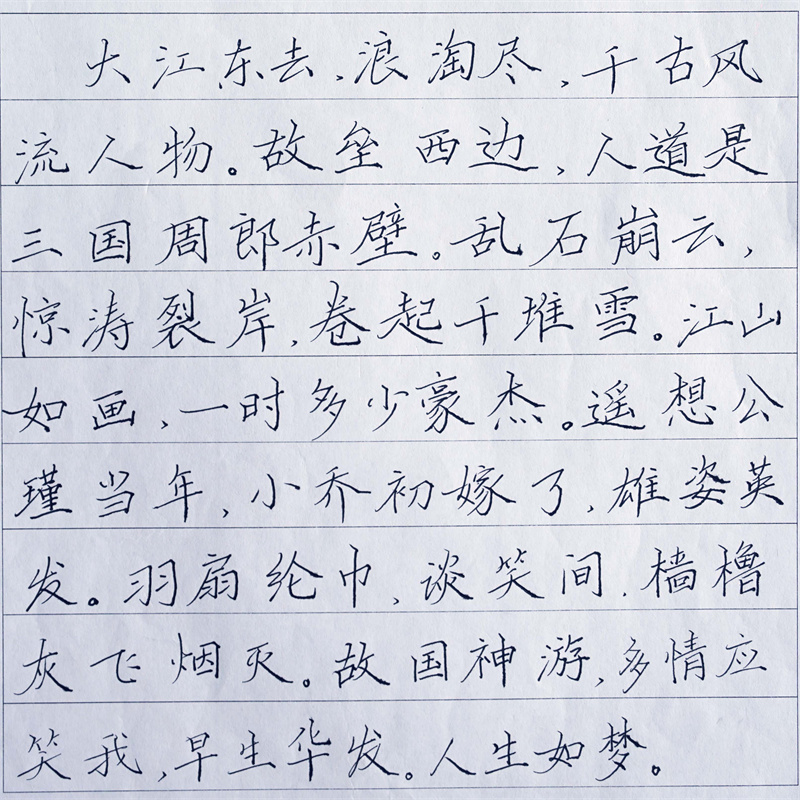 大江东去,浪淘尽,千古风
流人物。故垒西边,人道是
三国周郎赤壁。乱石崩云,
惊涛裂岸,卷起千堆雪。江山
如画,一时多少豪杰。遥想公
瑾当年,小乔初嫁了,雄姿英
发。羽扇纶巾,谈笑间,樯橹
灰飞烟灭。故国神游,多情应
笑我,早生华发。人生如梦。